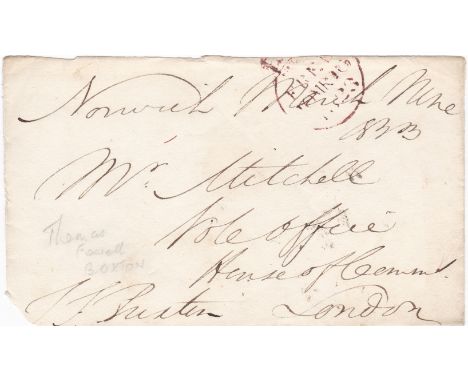 Norwich March Nine
1833
Mr. Mitchell
Vote Office
House of Commns.
Thomas
Fowell
BUXTON
T F Buxton London